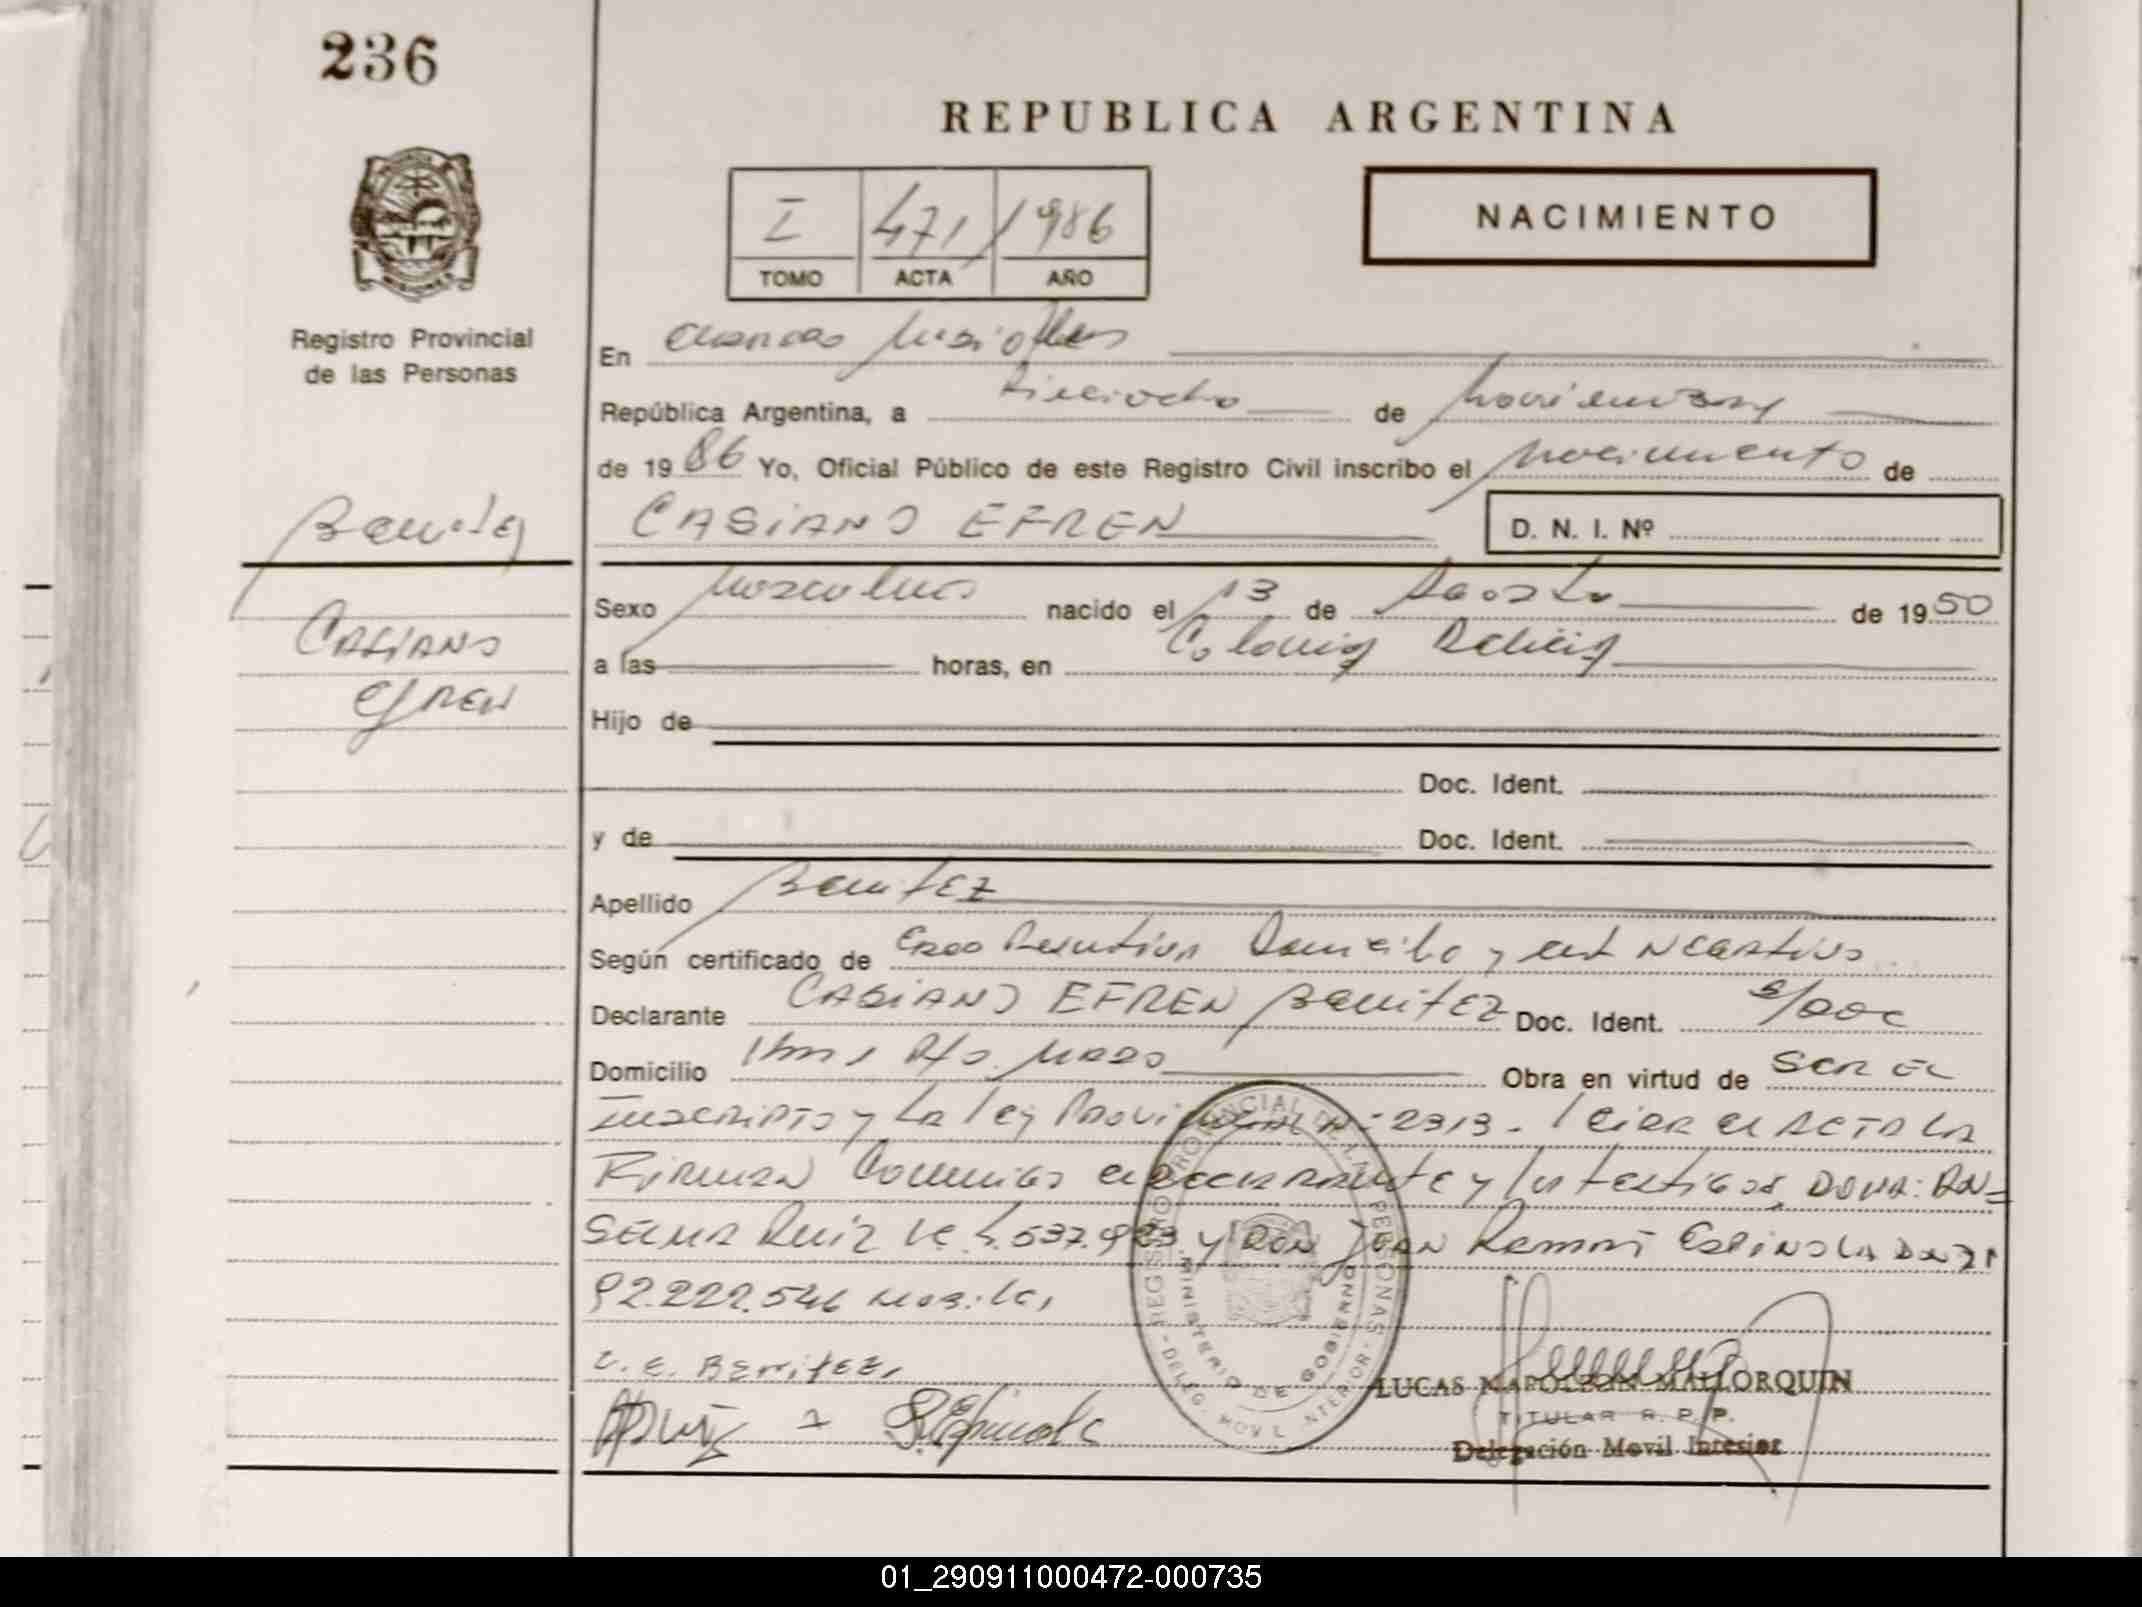 236
REPUBLICA ARGENTINA
I 471 1986
TOMO ACTA AÑO
NACIMIENTO
Registro Provincial
de las Personas
En Misiones
República Argentina, a Dieciocho de Noviembre
de 1986 Yo, Oficial Público de este Registro Civil inscribo el Nacimiento de
CASIANO EFREN D. N. I. Nº
Benitez
CASIANO
EFREN
Sexo Masculino nacido el 13 de Agosto de 1950
a las horas, en Colonia Delicia
Hijo de
Doc. Ident.
y de Doc. Ident.
Apellido Benitez
Según certificado de Domicilio y cert NEGATIVO
Declarante CASIANO EFREN Benitez Doc. Ident. S/DOC
Domicilio Obra en virtud de SER EL
INSCRIPTO y La Ley Provincial Nº 2313. Leida el ACTA LA
FIRMAN Conmigo el DECLARANTE y los testigos, DOÑA: AN=
SELMA Ruiz y DON JUAN Ramon ESPINOLA
92.222.546
C. E. BENITEZ
REGISTRO PROVINCIAL DE LAS PERSONAS
MINISTERIO DE GOBIERNO
DELEG. MOVIL INTERIOR
LUCAS NAPOLEON MALLORQUIN
TITULAR R. P. P.
Delegación Movil Interior
01_290911000472-000735